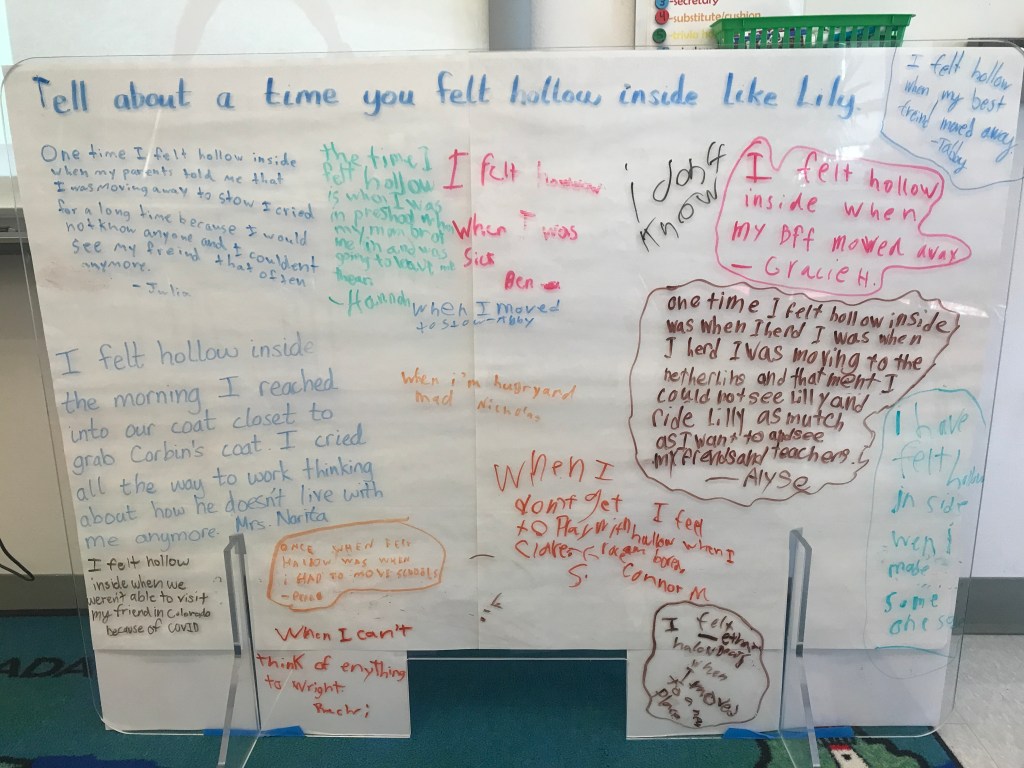 -secretary
-substitute/cushion
Tell about a time you felt hollow inside like Lily.
I felt hollow
when my best
freind moved away
-Tabby
One time I felt hollow inside
when my parents told me that
I was moving away to stow I cried
for a long time because I would
not know anyone and I couldent
see my freind that often
anymore.
- Julia
the time I
felt hollow
is when I was
in
me in and was
going to leave me
- Hannah
I felt
when I was
Sick
Ben
when I moved
to stow - Abby
i don't
know
I felt hollow
inside when
my Bff moved away
- Gracie H.
one time I felt hollow inside
was when I herd I was when
I herd I was moving to the
netherlins and that ment I
could not see Lilly and
ride Lilly as mutch
as I want to and see
my friends and teachers.
- Alyse
I felt hollow inside
the morning I reached
into our coat closet to
grab Corbin's coat. I cried
all the way to work thinking
about how he doesn't live with
me anymore. Mrs. Norita
when i'm hugry and
mad Nicholas
When I
don't get
to Play with
S.
I feel
hallow when I
am bored
Connor M
I have
felt hollow
in side
wen I
made
some
one sad
once when i felt
hallow was when
i had to move schools
I felt hollow
inside when we
weren't able to visit
my friend in Colorado
because of COVID
When I can't
think of enything
to wright.
I felt
when
I moved
to a
place